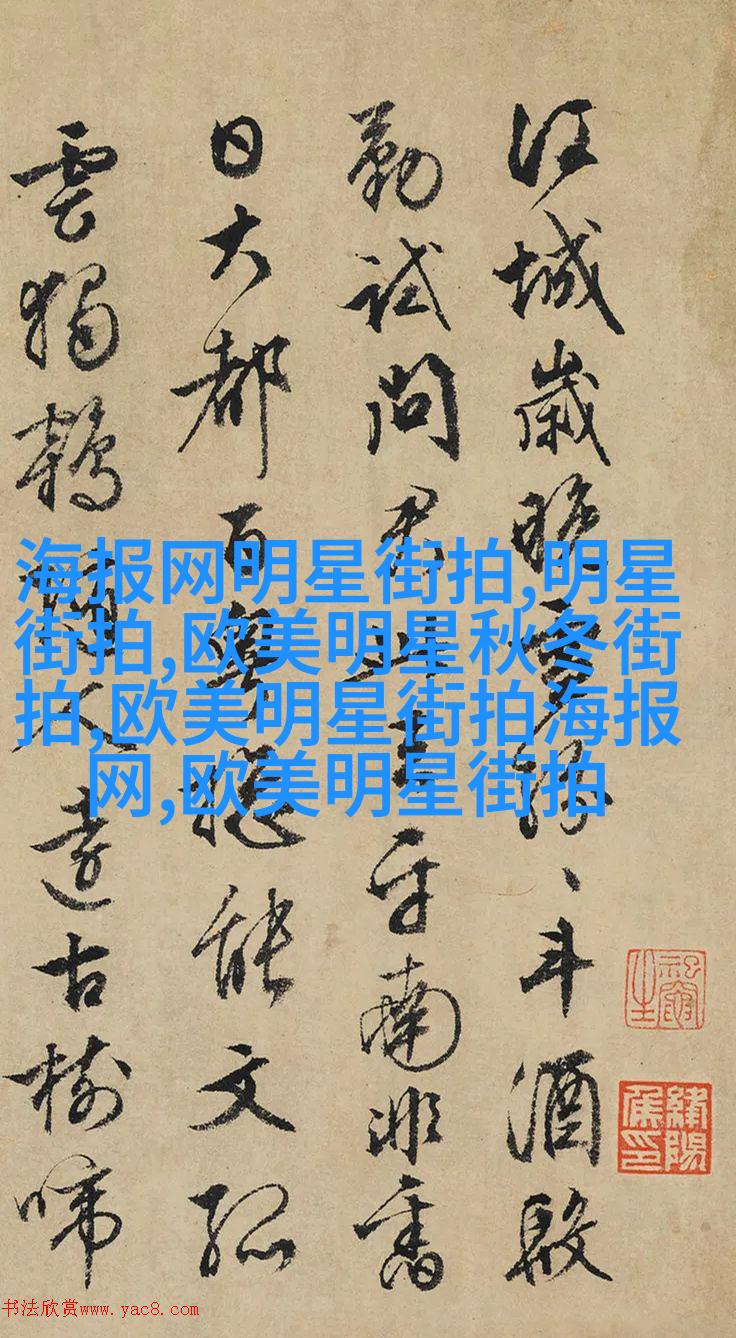 江城歲晚雪紛、斗酒殷
勤試問君 平南非舊
日大都百年總能文孤
雲獨鶴 人遠古樹啼
海报网明星街拍,明星
街拍,欧美明星秋冬街
拍,欧美明星街拍海报
网,欧美明星街拍
书法欣赏www.yac8.com